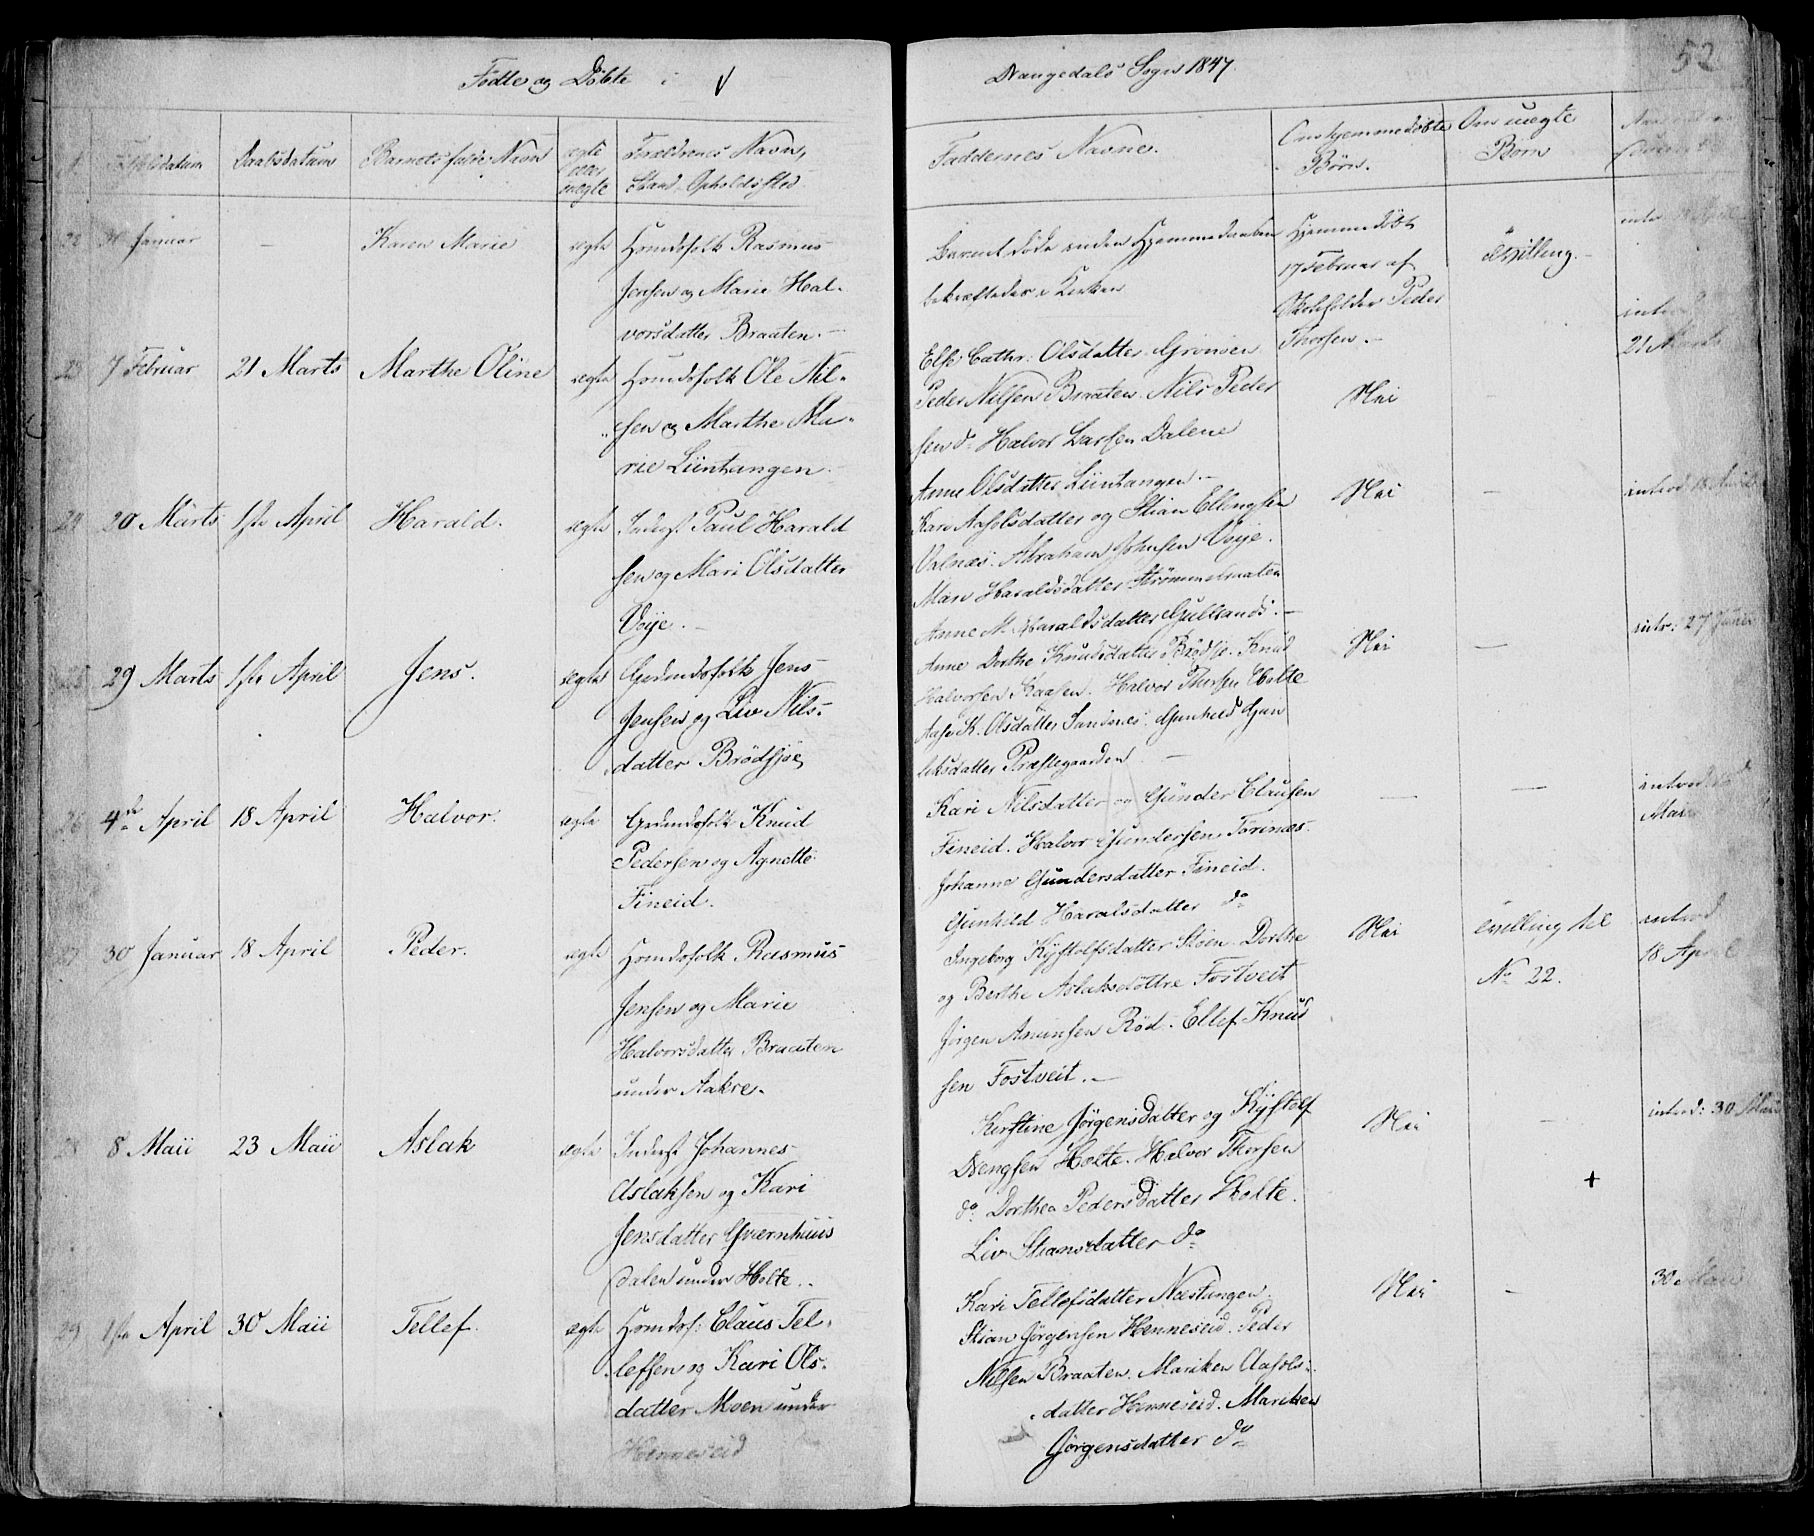 Fødte og Døbte i
Drangedals Sogn 1847
52
Fødselsdatum
Daabsdatum
Barnets fulde Navn
ægte
eller
uægte
Forældrenes Navn,
Stand, Opholdssted
Faddernes Navne.
Om hjemmedøbte
Børn.
Om uægte
Børn
22 30 Januar — Karen Marie ægte Huusmdsfolk Rasmus
Jensen og Marie Hal-
vorsdatter Braaten.
Barnet døde inden Hjemmedaaben
bekræftedes i Kirken
Hjemmedøbt
17 Februar af
Skoleholder Peder
Thorsen.
Tvilling.
introd 18 April
23 7 Februar 21 Marts Marthe Oline ægte Huusmdsfolk Ole Nil-
sen og Marthe Ma-
rie Liintangen.
Else Cathr: Olsdatter
Peder Nilsen Braaten. Nils Peder
sen do Halvor Larsen Dalene
Anne Olsdatter Liintangen.
Nei
introd
21 Marts
24 20 Marts 1ste April Harald. ægte Inderst Paul Harald
sen og Mari Olsdatter
Voje.
Kari Aasolsdatter og Stian Ellingsen
Valnæs. Abraham Johnsen Voje.
Mari Haraldsdatter Strømmebraaten
Anne M. Haraldsdatter Gulsand.
Nei
introd 18 April
25 29 Marts 1ste April Jens. ægte Gaardmdsfolk Jens
Jensen og Liv Nils-
datter Brødsjøe
Anne Dorthe Knudsdatter Brødsjø. Knud
Halvorsen Kaasen. Halvor Thorsen Holte
Aase K. Olsdatter Sandnes. Gunhild Gun
leksdatter Præstegaarden.
Nei
intr: 27 Junii
26 4de April 18 April Halvor. ægte Gaardmdsfolk Knud
Pedersen og Agnette
Fineid.
Kari Nilsdatter og Günder Clausen
Fineid. Halvor Gundersen Torinæs.
Johanne Gundersdatter Fineid.
Gunhild Haraldsdatter do
introd
Mai
27 30 Januar 18 April Peder. ægte Huusmdsfolk Rasmus
Jensen og Marie
Halvorsdatter Braaten
under Aakre.
Ingeborg Kjystolfsdatter Støen. Dorthe
og Berthe Aslaksdøttre Fostveit
Jørgen Amunsen Rød. Ellef Knud
sen Fostveit.
Nei
Tvilling til
No 22.
introd
18 April
28 8 Maii 23 Maii Aslak ægte Inderst Johannes
Aslaksen og Kari
Jensdatter Qværnhuus
dalen under Holte.
Kirstine Jørgensdatter og Kjystolf
Drengsen Holte. Halvor Thorsen
do. Dorthea Pedersdatter Holte.
Liv Stiansdatter do
Nei
+
introd: 30 Maii
29 1ste April 30 Maii Tellef. ægte Huusmdsf: Claus Tel-
lefsen og Kari Ols-
datter Moen under
Henneseid
Kari Tellefsdatter Næstangen.
Stian Jørgensen Henneseid. Peder
Nilsen Braaten. Mariken Aasols-
datter Henneseid. Mariken
Jørgensdatter do
Nei
30 Maii